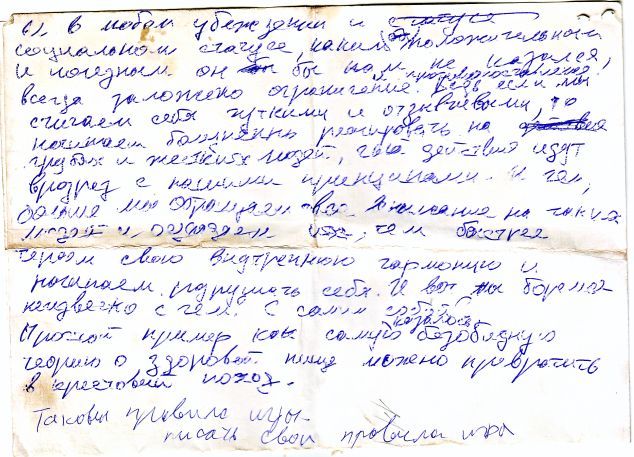 6). В любом убеждении и статусе
социальном статусе, каким бы положительным
и полезным он бы вам не казался,
и противопоставление.
всегда заложено ограничение Ведь если мы
считаем себя чуткими и отзывчивыми, то
начинаем болезненно реагировать на
грубых и жестких людей, чьи действия идут
вразрез с нашими принципами. И чем
больше мы обращаем внимание на таких
людей и осуждаем их, тем быстрее
теряем свою внутреннюю гармонию и
начинаем разрушать себя. И вот мы боремся
неизвестно с чем. С самим собой.
казалось
Простой пример как самую безобидную
теорию о здоровой пище можно превратить
в крестовый поход.
Таковы правила игры
писать свои правила игры